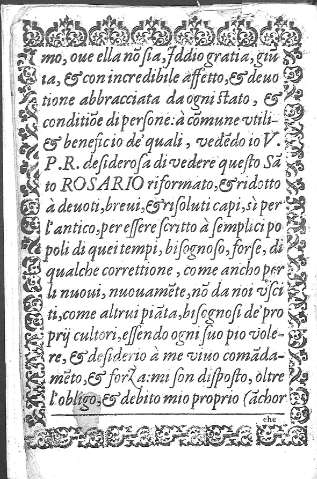 mo, oue ella nõ sia, Iddio gratia, giũ
ta, & con incredibile affetto, & deuo
tione abbracciata da ogni stato, &
conditiõe di persone: à cõmune vtili-
& beneficio de' quali, vedẽdo io V.
P. R. desiderosa di vedere questo Sã
to ROSARIO riformato, & ridotto
à deuoti, breui, & risoluti capi, sì per
l'antico, per essere scritto à semplici po
poli di quei tempi, bisognoso, forse, di
qualche correttione, come ancho per
li nuoui, nuouamẽte, nõ da noi vsci
ti, come altrui piãta, bisognosi de' pro
prij cultori, essendo ogni suo pio vole-
re, & desiderio à me viuo comãda-
mẽto, & forza: mi son disposto, oltre
l'obligo, & debito mio proprio (ãchor
che